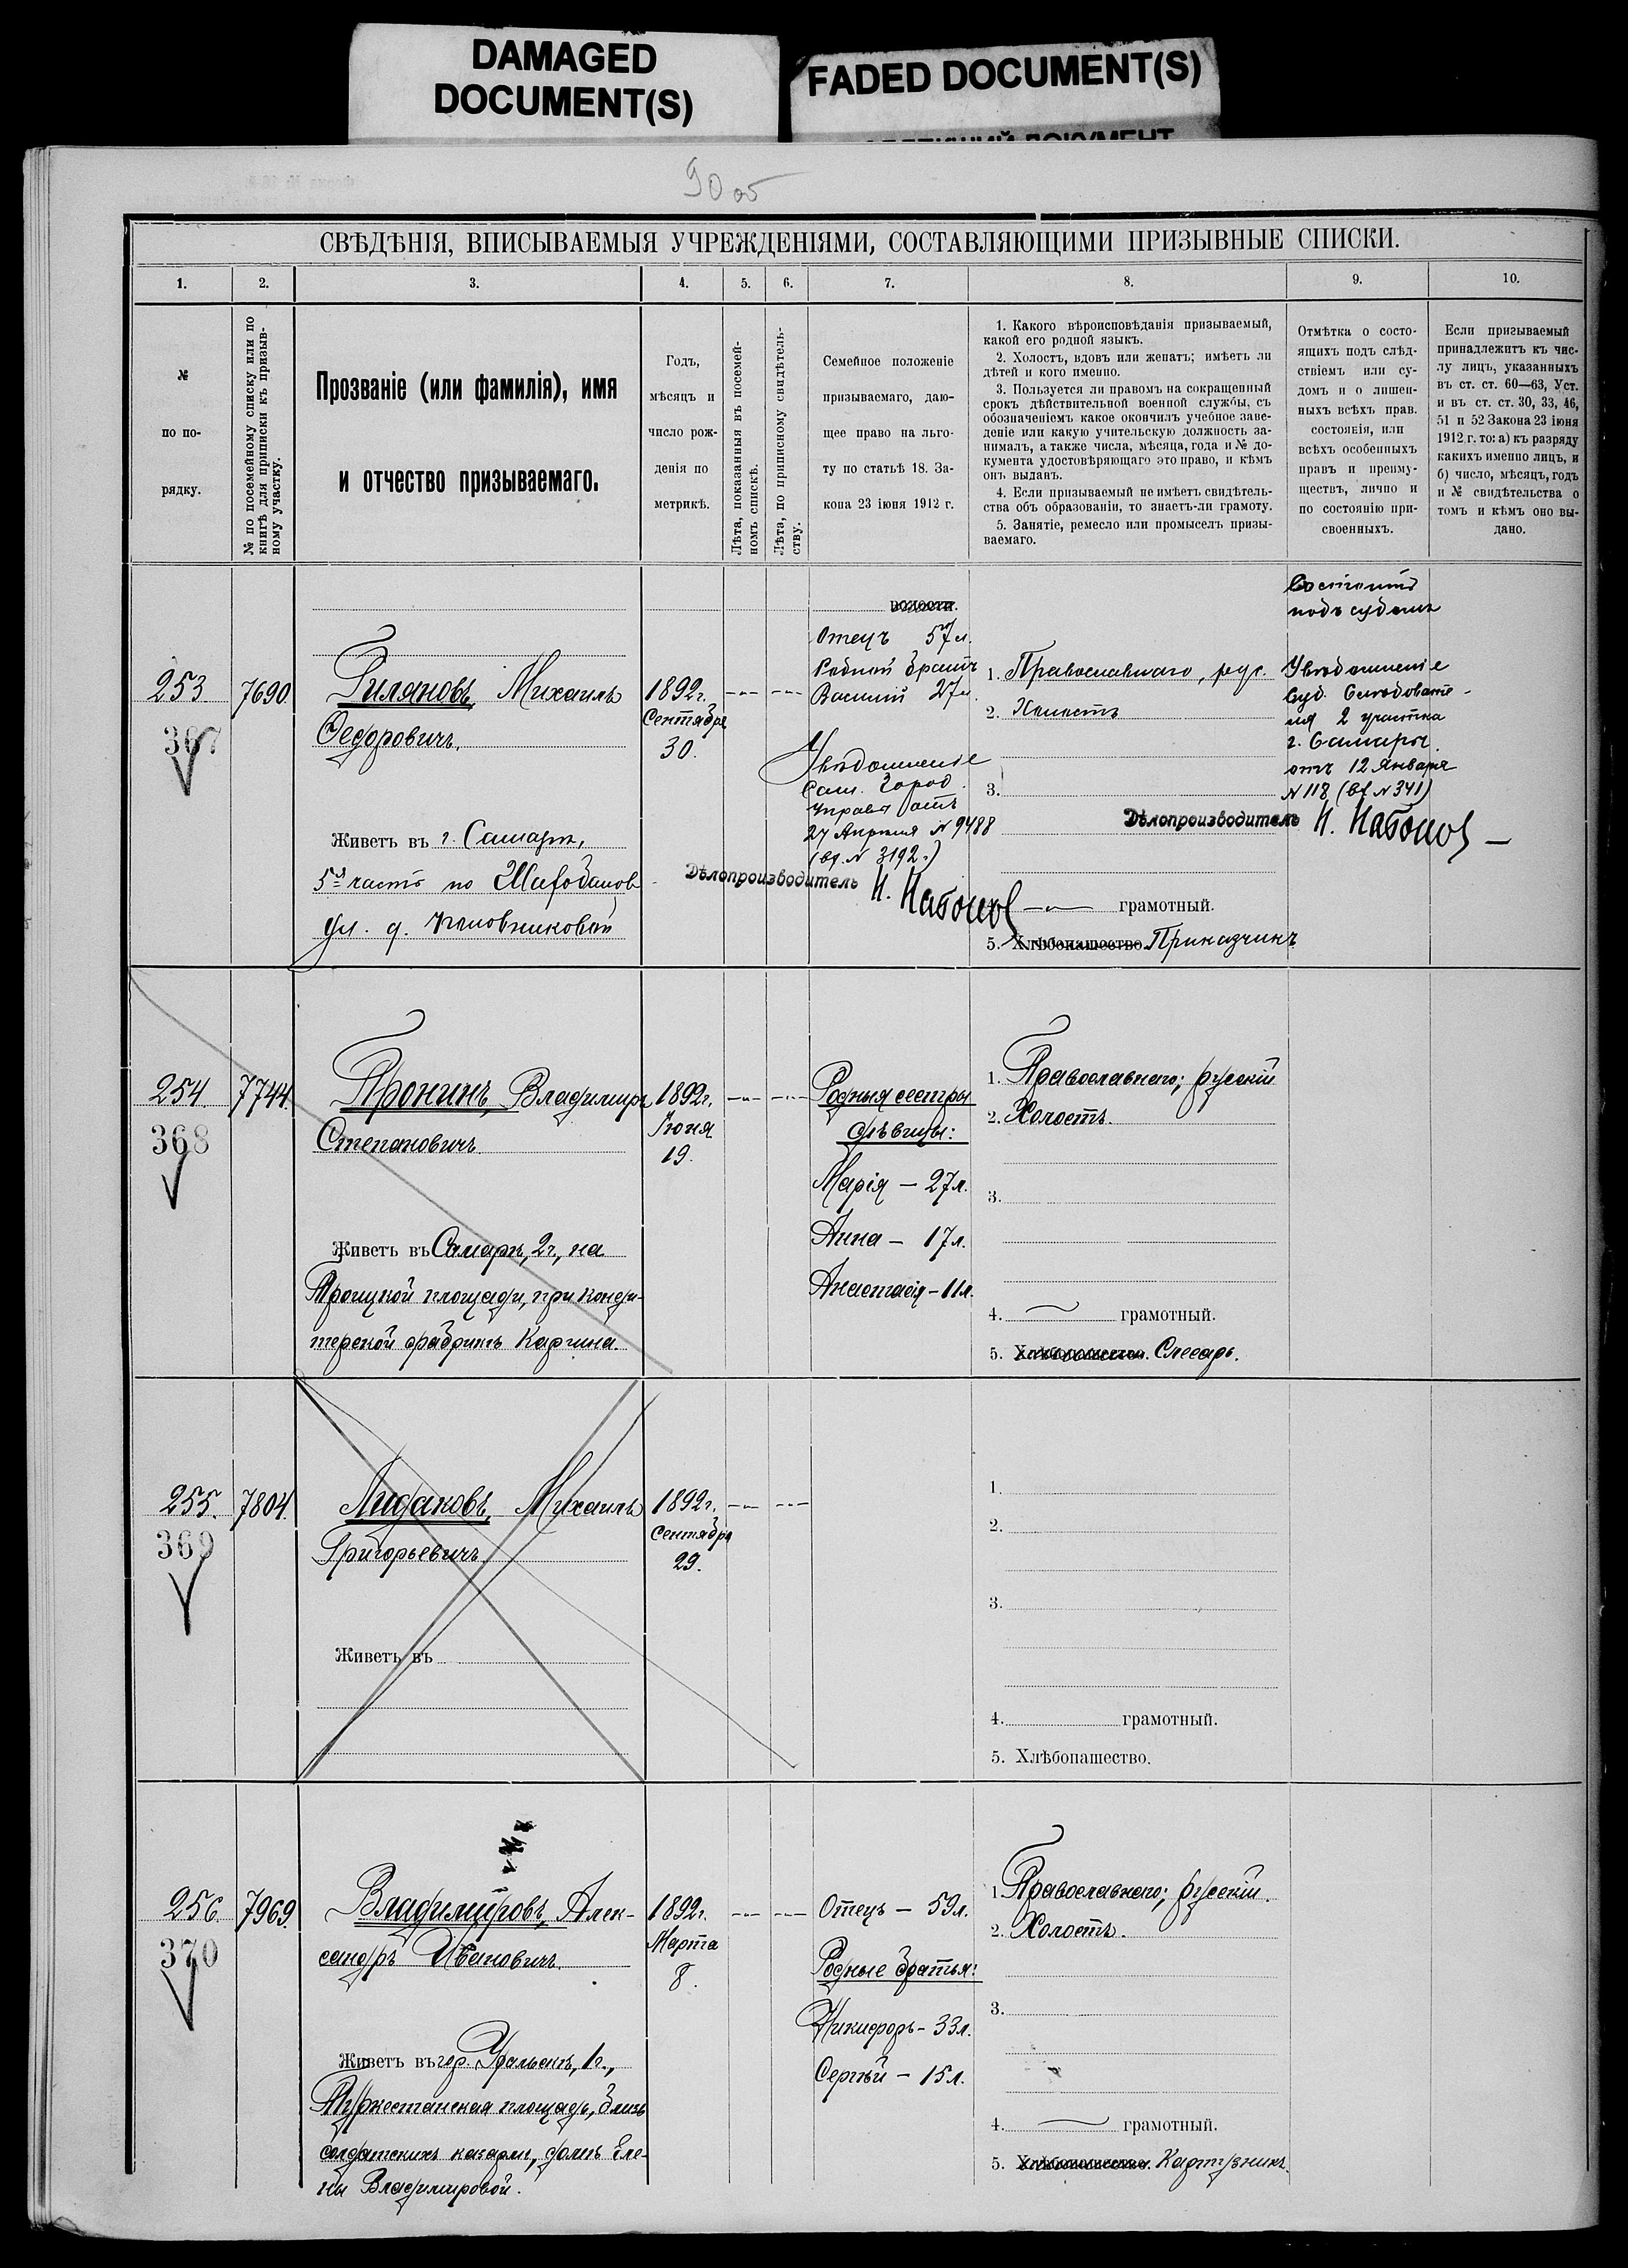 DAMAGED
DOCUMENT(S)
FADED DOCUMENT(S)
90 об
СВѢДѢНІЯ, ВПИСЫВАЕМЫЯ УЧРЕЖДЕНІЯМИ, СОСТАВЛЯЮЩИМИ ПРИЗЫВНЫЕ СПИСКИ.
1.
2.
3.
4.
5.
6.
7.
8.
9.
10.
№
по по-
рядку.
№ по посемейному списку или по
книгѣ для приписки къ призыв-
ному участку.
Прозваніе (или фамилія), имя
и отчество призываемаго.
Годъ,
мѣсяцъ и
число рож-
денія по
метрикѣ.
Лѣта, показанныя въ посемей-
номъ спискѣ.
Лѣта, по приписному свидѣтель-
ству.
Семейное положеніе
призываемаго, даю-
щее право на льго-
ту по статьѣ 18. За-
кона 23 іюня 1912 г.
1. Какого вѣроисповѣданія призываемый,
какой его родной языкъ.
2. Холостъ, вдовъ или женатъ; имѣетъ ли
дѣтей и кого именно.
3. Пользуется ли правомъ на сокращенный
срокъ дѣйствительной военной службы, съ
обозначеніемъ какое окончилъ учебное заве-
деніе или какую учительскую должность за-
нималъ, а также числа, мѣсяца, года и № до-
кумента удостовѣряющаго это право, и кѣмъ
онъ выданъ.
4. Если призываемый не имѣетъ свидѣтель-
ства объ образованіи, то знаетъ-ли грамоту.
5. Занятіе, ремесло или промыселъ призы-
ваемаго.
Отмѣтка о состо-
ящихъ подъ слѣд-
ствіемъ или су-
домъ и о лишен-
ныхъ всѣхъ прав.
состоянія, или
всѣхъ особенныхъ
правъ и преиму-
ществъ, лично и
по состоянію при-
своенныхъ.
Если призываемый
принадлежитъ къ чис-
лу лицъ, указанныхъ
въ ст. ст. 60—63, Уст.
и въ ст. ст. 30, 33, 46,
51 и 52 Закона 23 іюня
1912 г. то: а) къ разряду
какихъ именно лицъ, и
б) число, мѣсяцъ, годъ
и № свидѣтельства о
томъ и кѣмъ оно вы-
дано.
253
367
7690
Михаилъ
Федоровичъ.
Живетъ въ г. Самарѣ,
5я часть по
ул. д.
1892г.
Сентября
30.
волости.
Отецъ 57 л.
Родной братъ
Василий 27 л.
Увѣдомленіе
Сам. Город.
Управы отъ
27 Апрѣля № 9488
(вх. № 3192.)
Дѣлопроизводитель
1. Православнаго, рус.
2. Холостъ
3.
грамотный.
5. Хлѣбопашество. Приказчикъ
Состоитъ
подъ судомъ
Увѣдомленіе
Суд. Слѣдовате-
ля 2 участка
г. Самары.
отъ 12 Января
№ 118 (вх № 341)
Дѣлопроизводитель
254.
368
7744.
Пронинъ, Владимиръ
Степановичъ.
Живетъ въ Самарѣ, 2ч., на
Троицкой площади, при конди-
терской фабрикѣ Каргина.
1892г.
Іюня
19.
Родныя сестры
дѣвицы:
Марія — 27 л.
Анна — 17 л.
Анастасія — 11 л.
1. Православнаго; русскій
2. Холостъ.
3.
4. грамотный.
5. Хлѣбопашество. Слесарь.
255.
369
7804.
Лидановъ, Михаилъ
Григорьевичъ.
Живетъ въ
1892г.
Сентября
29.
1.
2.
3.
4. грамотный.
5. Хлѣбопашество.
256.
370
7969.
Владиміровъ, Алек-
сандръ Ивановичъ.
Живетъ въ гор. Уральскѣ, 1ч.,
Туркестанская площадь, близь
солдатскихъ казармъ, домъ Еле-
ны Владимировой.
1892г.
Марта
8.
Отецъ — 59 л.
Родные братья:
Никифоръ — 33 л.
Сергѣй — 15 л.
1. Православнаго; русскій.
2. Холостъ.
3.
4. грамотный.
5. Хлѣбопашество. Картузникъ.